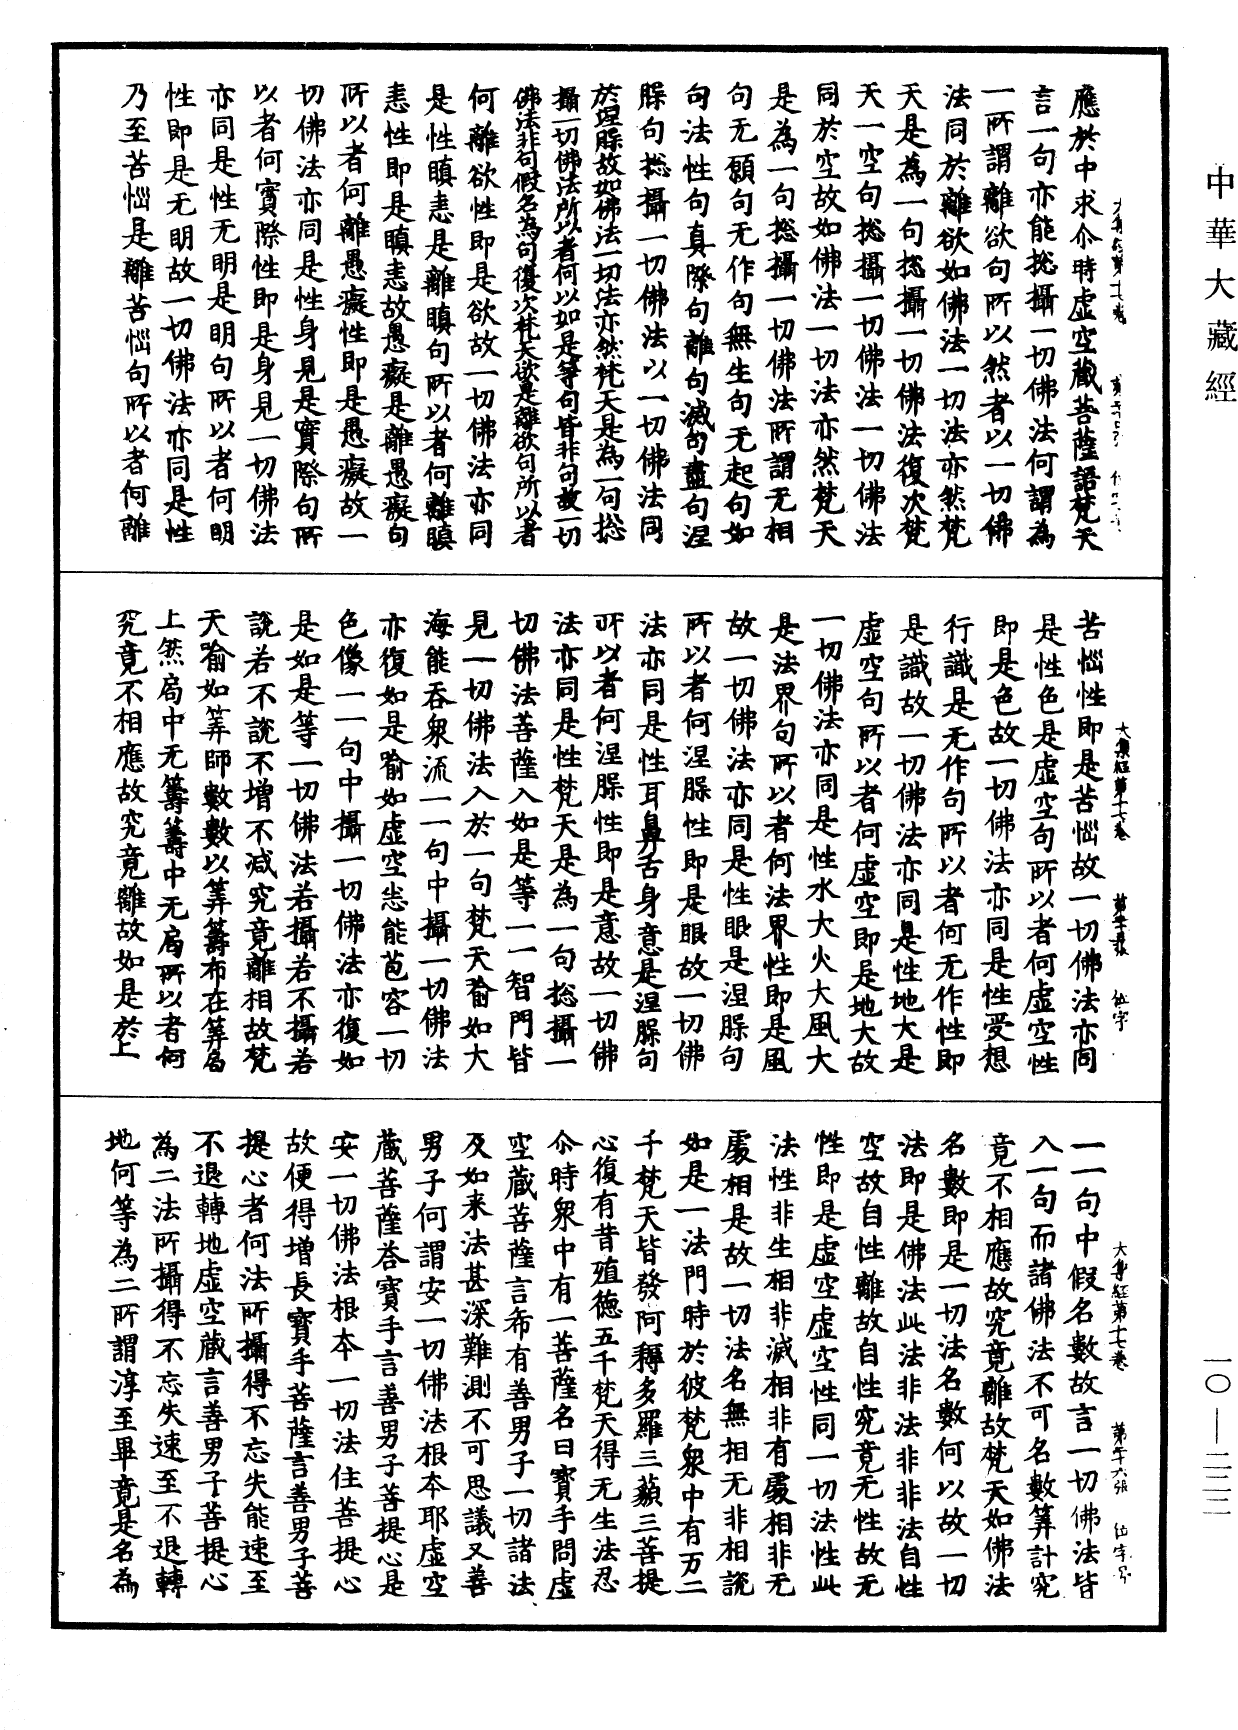 中華大藏經
應於中求尒時虛空藏菩薩語梵天
言一句亦能捴攝一切佛法何謂為
一所謂離欲句所以然者以一切佛
法同於離欲如佛法一切法亦然梵
天是為一句捴攝一切佛法復次梵
天一空句捴攝一切佛法一切佛法
同於空故如佛法一切法亦然梵天
是為一句捴攝一切佛法所謂无相
句无願句无作句無生句无起句如
句法性句真際句離句滅句盡句涅
槃句捴攝一切佛法以一切佛法同
於涅槃故如佛法一切法亦然梵天是為一句捴
攝一切佛法所以者何以如是等句皆非句故一切
佛法非句假名為句復次梵天欲是離欲句所以者
何離欲性即是欲故一切佛法亦同
是性瞋恚是離瞋句所以者何離瞋
恚性即是瞋恚故愚癡是離愚癡句
所以者何離愚癡性即是愚癡故一
切佛法亦同是性身見是實際句所
以者何實際性即是身見一切佛法
亦同是性无明是明句所以者何明
性即是无明故一切佛法亦同是性
乃至苦惱是離苦惱句所以者何離
大集經第十七卷
苦惱性即是苦惱故一切佛法亦同
是性色是虛空句所以者何虛空性
即是色故一切佛法亦同是性受想
行識是无作句所以者何无作性即
是識故一切佛法亦同是性地大是
虛空句所以者何虛空即是地大故
一切佛法亦同是性水大火大風大
是法界句所以者何法界性即是風
故一切佛法亦同是性眼是涅槃句
所以者何涅槃性即是眼故一切佛
法亦同是性耳鼻舌身意是涅槃句
所以者何涅槃性即是意故一切佛
法亦同是性梵天是為一句捴攝一
切佛法菩薩入如是等一一智門皆
見一切佛法入於一句梵天喻如大
海能吞眾流一一句中攝一切佛法
亦復如是喻如虛空悉能苞容一切
色像一一句中攝一切佛法亦復如
是如是等一切佛法若攝若不攝若
說若不說不增不減究竟離相故梵
天喻如筭師數數以筭籌布在筭局
上然局中无籌籌中无局所以者何
究竟不相應故究竟離故如是於上
大集經第十七卷 第十六張 位字号
一一句中假名數故言一切佛法皆
入一句而諸佛法不可名數筭計究
竟不相應故究竟離故梵天如佛法
名數即是一切法名數何以故一切
法即是佛法此法非法非非法自性
空故自性離故自性究竟无性故无
性即是虛空虛空性同一切法性此
法性非生相非滅相非有處相非无
處相是故一切法名無相无非相說
如是一法門時於彼梵眾中有万二
千梵天皆發阿耨多羅三藐三菩提
心復有昔殖德五千梵天得无生法忍
尒時眾中有一菩薩名曰寶手問虛
空藏菩薩言希有善男子一切諸法
及如来法甚深難測不可思議又善
男子何謂安一切佛法根本耶虛空
藏菩薩荅寶手言善男子菩提心是
安一切佛法根本一切法住菩提心
故便得增長寶手菩薩言善男子菩
提心者何法所攝得不忘失能速至
不退轉地虛空藏言善男子菩提心
為二法所攝得不忘失速至不退轉
地何等為二所謂淳至畢竟是名為
一〇—二三二